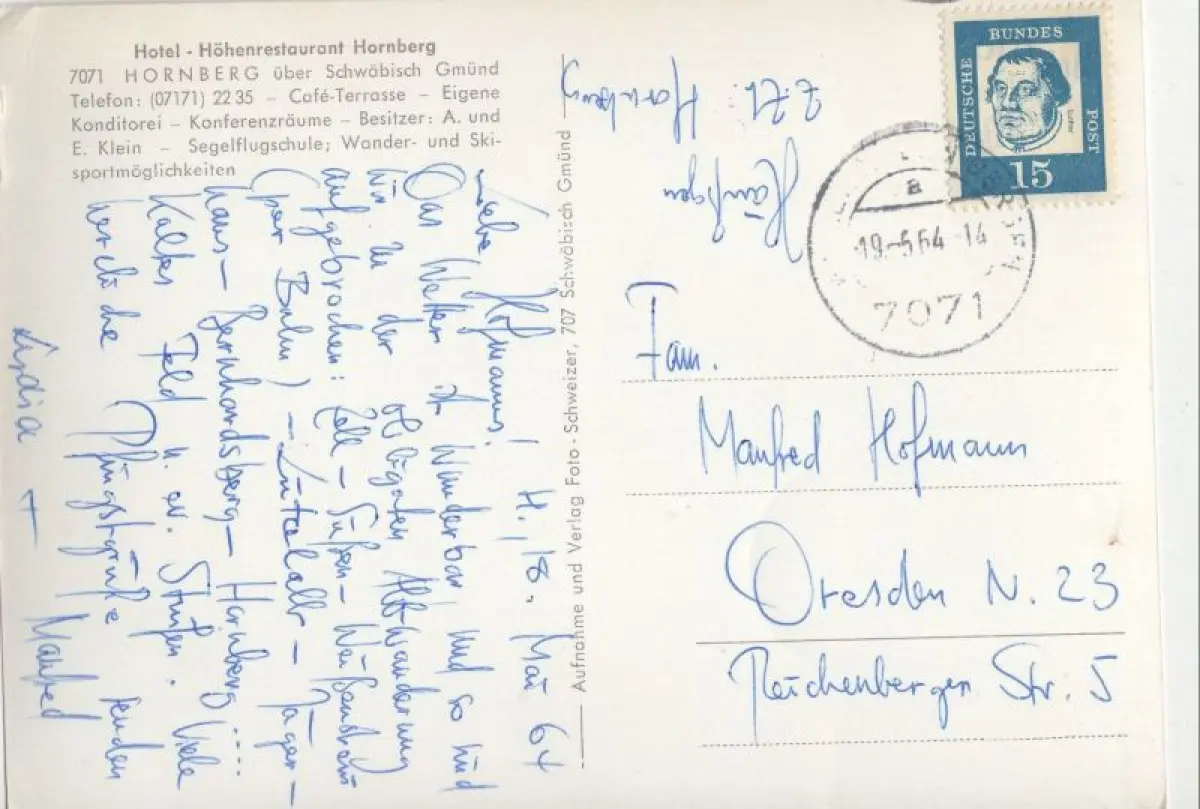 Hotel - Höhenrestaurant Hornberg
7071 HORNBERG über Schwäbisch Gmünd
Telefon: (07171) 22 35 – Café-Terrasse – Eigene
Konditorei – Konferenzräume – Besitzer: A. und
E. Klein – Segelflugschule; Wander- und Ski-
sportmöglichkeiten
H., 18. Mai 64
Liebe Hofmanns!
Das Wetter ist wunderbar und so sind
wir zu der obligaten Albwanderung
aufgebrochen: Zell – Süßen – Weißenstein
(per Bahn) – Lützelalb – Jäger-
haus – Bernhardsberg – Hornberg ....
Kaltes Feld u. ev. Stuifen. Viele
herzliche Pfingstgrüße senden
Lydia + Manfred
Aufnahme und Verlag Foto - Schweizer, 707 Schwäbisch Gmünd
z. Zt.
Hornberg
DEUTSCHE
BUNDES
POST
Luther
15
a
19.-5.64-14
7071
Fam.
Manfred Hofmann
Dresden N. 23
Reichenberger Str. 5